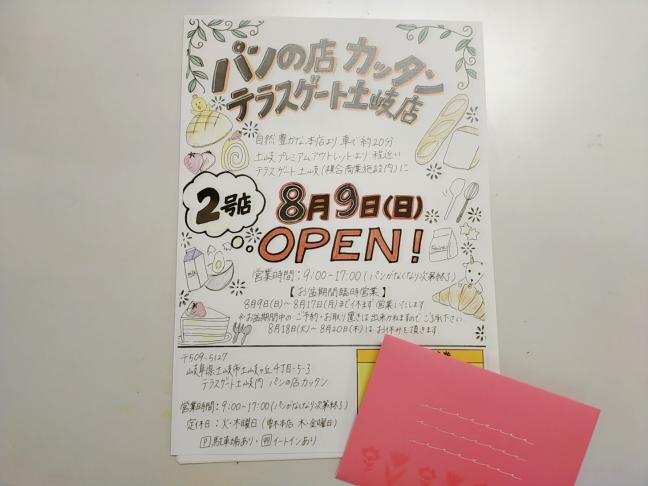 パンの店 カッタン
テラスゲート土岐店
自然豊かな本店より 車で約20分
土岐プレミアムアウトレットより 程近い
テラスゲート土岐(複合商業施設内)に
2号店
8月9日(日)
OPEN!
営業時間:9:00-17:00(パンがなくなり次第終了)
【お盆期間臨時営業】
8月9日(日)〜8月17日(月)まで休まず営業いたします
※お盆期間中のご予約・お取り置きは出来かねますのでご了承下さい
8月18日(火)〜8月20日(木)はお休みを頂きます。
milk
〒509-5127
岐阜県土岐市土岐ヶ丘4丁目-5-3
テラスゲート土岐内 パンの店カッタン
営業時間:9:00-17:00(パンがなくなり次第終了)
定休日:火・木曜日(本店 木・金曜日)
P 駐車場あり・イートインあり